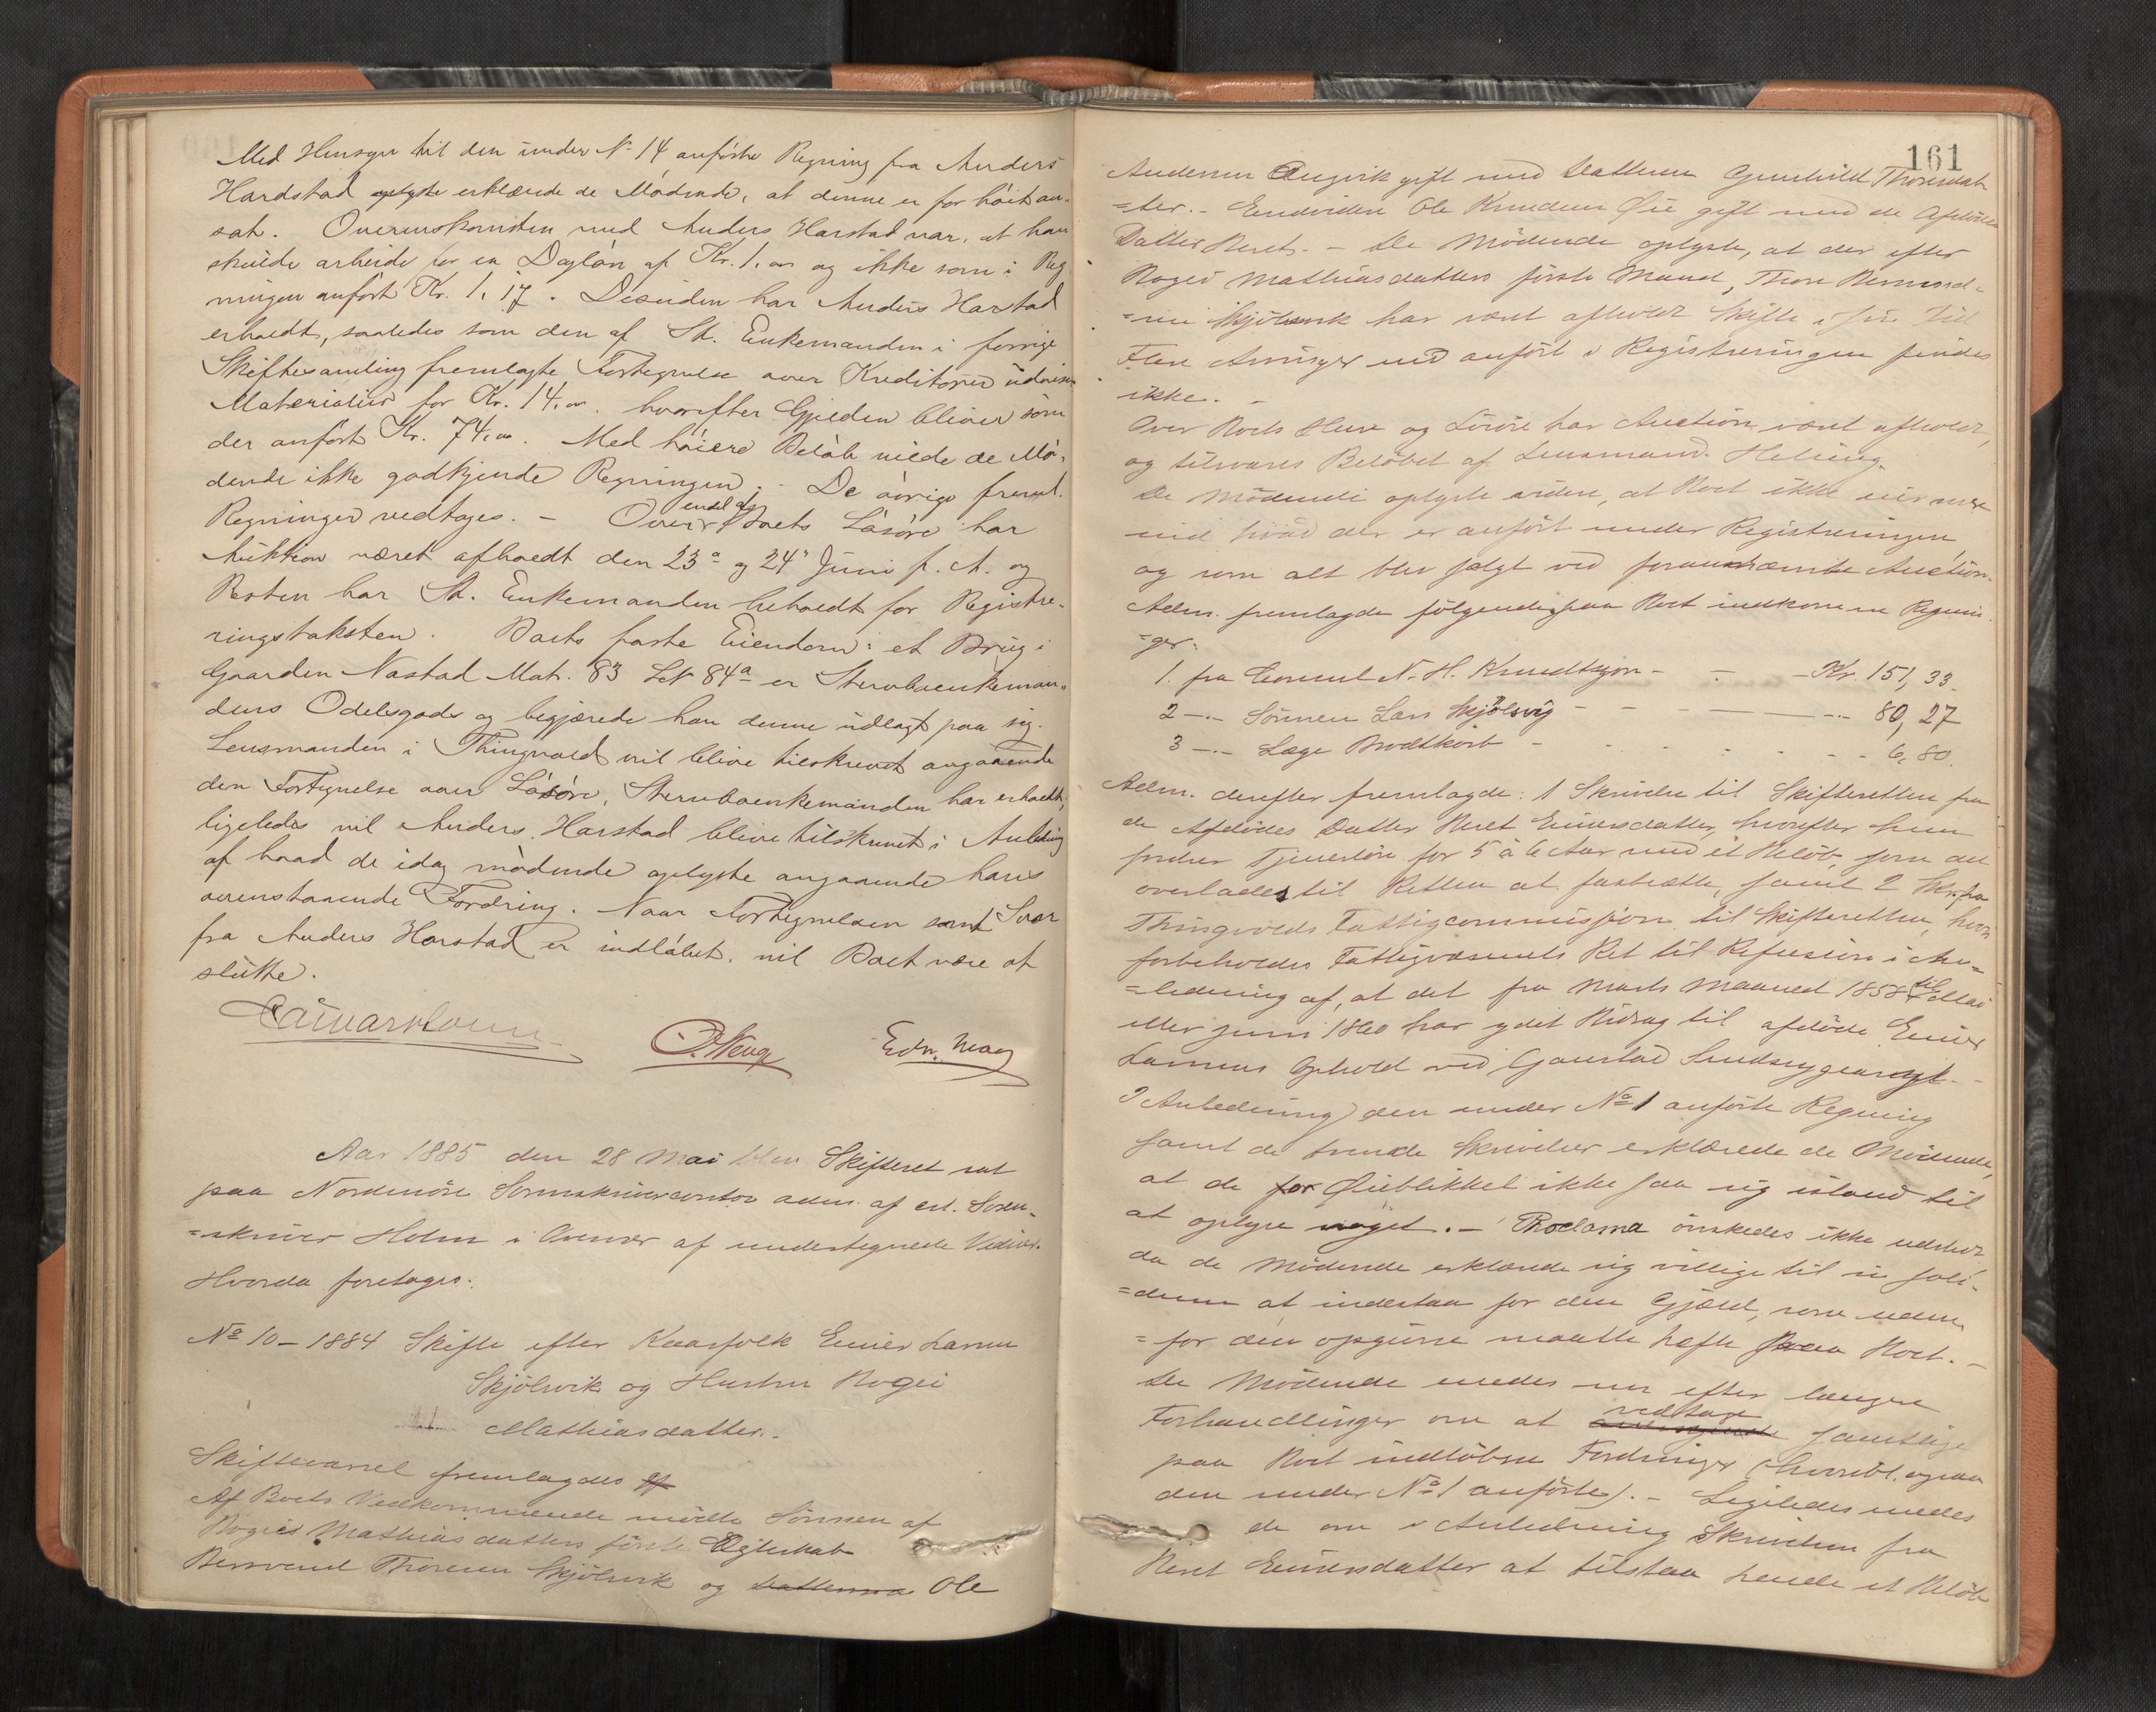 Med Hensyn til den under No 14 anførte Regning fra Anders
Hardstad oplyste erklærede de Mødende, at denne er for høit an-
sat. Overenskomsten med Anders Harstad var, at han
skulde arbeide for en Dagløn af Kr. 1,00 og ikke som i Reg
ningen anført Kr. 1,17. Desuden har Anders Harstad
erholdt, saaledes som den af St. Enkemanden i forrige
Skiftesamling fremlagte Fortegnelse over Kreditorer udviser
Materialier for Kr. 14,00. hvorefter Gjælden bliver som
der anført Kr. 74,00. Med høiere Beløb vilde de Mø-
dende ikke godkjende Regningen. - De øvrige freml.
Regninger vedtages. - Over endel af Boets Løsøre har
Auktion været afholdt den 23de og 24de Juni f. A. og
Resten har St. Enkemanden beholdt for Registre-
ringstaksten. Boets faste Eiendom: et Brug i
Gaarden Nastad Mat. 83 L.N. 84a er Stervboenkeman-
dens Odelsgods og begjærede han denne udlagt paa sig.
Lensmanden i Thingvold vil blive tilskrevet angaaende
den Fortegnelse over Løsøre, Stervboenkemanden har erholdt,
ligeledes vil Anders Harstad blive tilskrevet i Anledning
af hvad de idag mødende oplyste angaaende hans
ovenstaaende Fordring. Naar Fortegnelsen samt Svar
fra Anders Harstad er indløbet, vil Boet være at
slutte.
Edv. Maoy
Aar 1885 den 28 Mai blev Skifteret sat
paa Nordmøre Sorenskrivercontor adm. af cst. Soren-
=skriver Holm i Overvær af undertegnede Vidner.
Hvorda foretoges:
No 10 - 1884 Skifte efter Kaarfolk Einer Larsen
Skjølsvik og Hustru Rogei
Mathiasdatter.
Skiftevarsel fremlagdes af
Af Boets Vedkommende mødte Sønnen af
Rogeis Mathiasdatters første Egteskab
Bersvend Thoresen Skjølsvik og Datteren Ole
161
Andersen Angvik gift med Datteren Gunhild Thoresdat
=ter. - Endvidere Ole Knudsen Øie gift med de Afdødes
Datter Beret. - De Mødende oplyste, at der efter
Rogei Mathiasdatters første Mand, Thore Bersvend-
=sen Skjølsvik har været afholdt Skifte i sin Tid
Flere Arvinger end anført i Registreringen findes
ikke. -
Over Boets Huse og Løsøre har Auction været afholdt,
og tilsvares Beløbet af Lensmand Heltzing.
De Mødende oplyste videre, at Boet ikke eier mere
end hvad der er anført under Registreringen,
og som alt blev solgt ved forannævnte Auction.
Adm. fremlagde følgende paa Boet indkomne Regnin
=ger:
1. fra Consul N. H. Knudtzon - - - Kr. 151,33.
2 -.- Sønnen Lars Skjølsvig - - - 80,27
3 -.- Læge Brodtkorb - - - 6,80.
Adm. derefter fremlagde: 1 Skrivelse til Skifteretten fra
de Afdødes Datter Beret Einersdatter, hvorefter hun
fordrer Tjenerløn for 5 à 6 Aar med et Beløb, som det
overlades til Retten at fastsætte, samt 2 Skr. fra
Thingvolds Fattigcommission til Skifteretten, hvori
forbeholdes Fattigvæsenets Ret til Refusion i An-
=ledning af, at det fra Marts Maaned 1858 til Mai
eller Juni 1860 har ydet Bidrag til afdøde Einer
Larsens Ophold ved Gaustad Sindsygeasyl. -
I Anledning den under No 1 anførte Regning
samt de trende Skrivelser erklærede de Mødende,
at de for Øieblikket ikke saa sig istand til
at oplyse noget. - Proclama ønskedes ikke udstedt
da de Mødende erklærede sig villige til in soli-
=dum at indestaa for den Gjæld, som uden-
=for den opgivne maatte hefte paa Boet. -
De Mødende enedes nu efter længere
Forhandlinger om at vedtage samtlige
paa Boet indløbne Fordringer (hvoriblt. ogsaa
den under No 1 anførte). - Ligeledes enedes
de om i Anledning Skrivelsen fra
Beret Einersdatter at tilstaa hende et Beløb